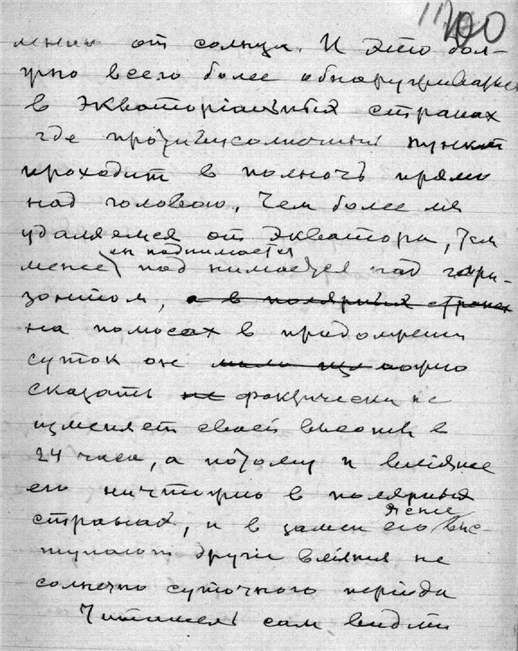 100
лению от солнца. И это дол-
жно всего более обнаруживаться
в экваторіальных странах
где противусолнечный пункт
проходит в полночь прямо
над головою. Чем более мы
удаляемся от экватора, тем
он поднимается
менее поднимается над гори-
зонтом, а в полярных странах
на полюсах в продолжении
суток он можно
сказать не фактически не
изменяет своей высоты в
24 часа, а потому и вліяние
его ничтожно в полярных
странах, и в замен его яснее выс-
тупают другие вліяния не
солнечно суточного періода
Читатель сам видит